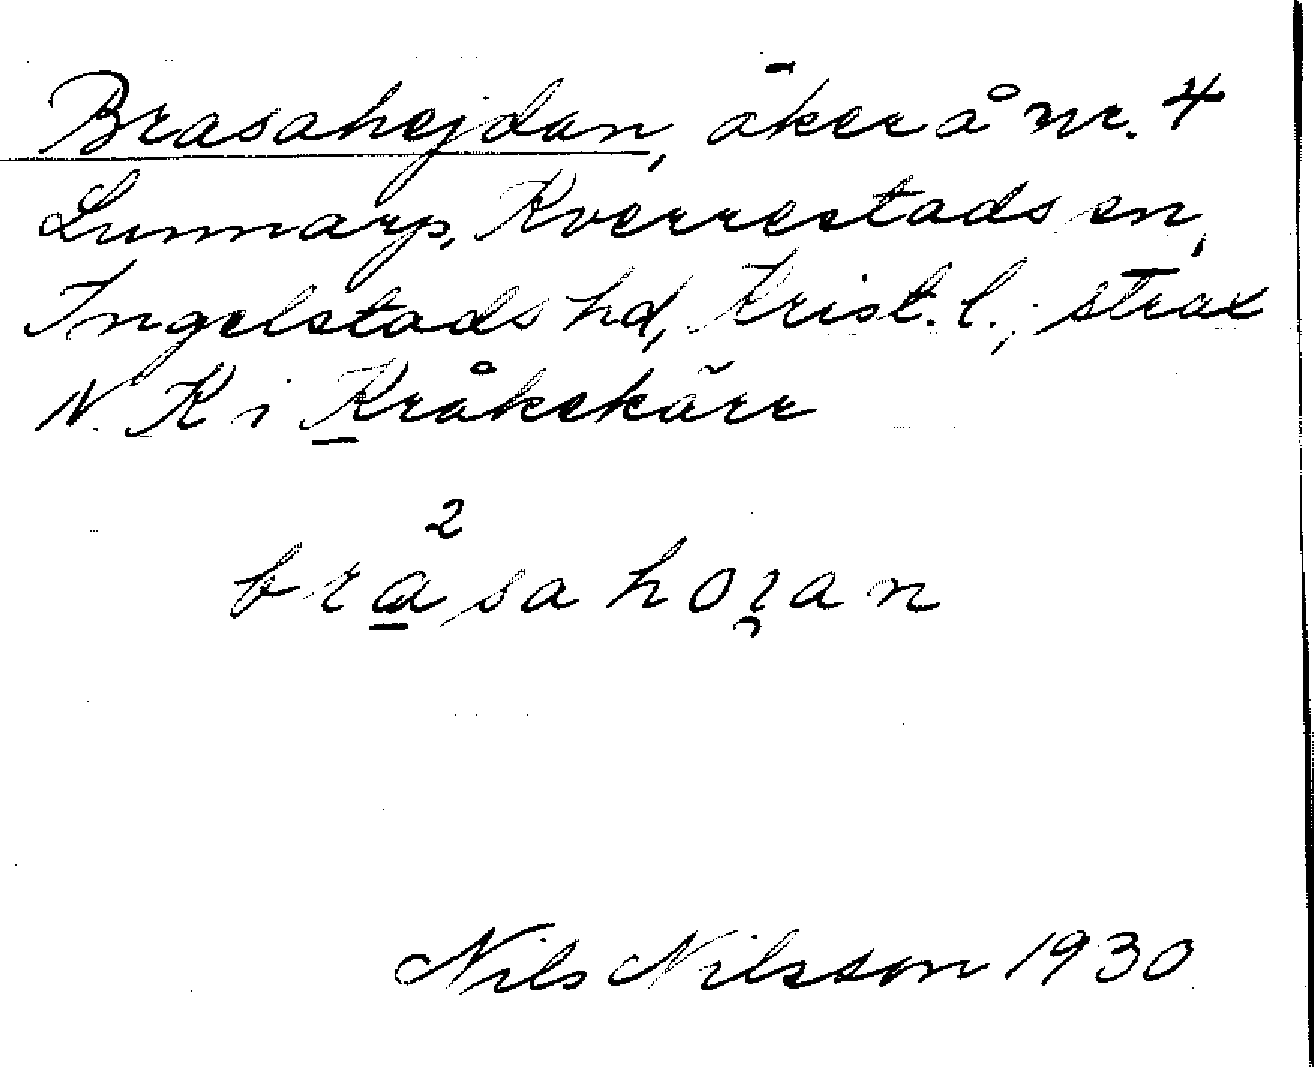 Brasahejdan, åker å nr. 4
Lunnarp, Kverrestads sn,
Ingelstads hd, Krist. l.; strax
N. K i Kråkekärr
2
brasa horan
Nils Nilsson 1930